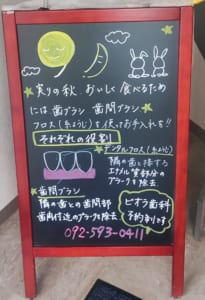 実りの秋 おいしく食べるため
には 歯ブラシ 歯間ブラシ
フロス(糸ようじ)を使ってお手入れを!!
それぞれの役割
デンタルフロス(糸ようじ)
隣の歯と接する
エナメル質部分の
プラークを除去
歯間ブラシ
隣の歯との歯間部
歯肉付近のプラークを除去
ピオラ歯科
予約制です
092-593-0411